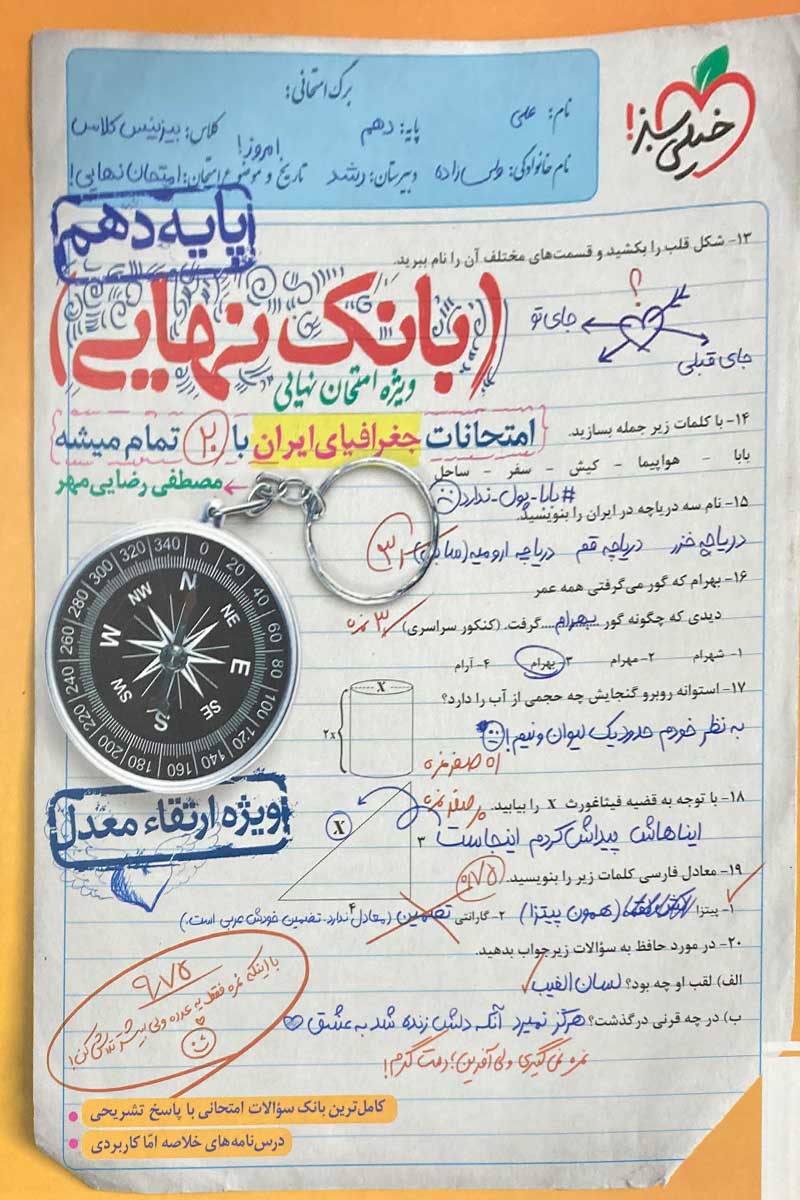 خیلی سبز!
برگ امتحانی:
نام: علی
پایه: دهم
کلاس: بیزینس کلاس
نام خانوادگی: ولی زاده
دبیرستان: رشد
تاریخ و موضوع امتحان: امتحان نهایی!
امروز!
پایه دهم
۱۳- شکل قلب را بکشید و قسمت‌های مختلف آن را نام ببرید.
؟
جای تو
جای قبلی
(بانک نهایی)
ویژه امتحان نهایی
امتحانات جغرافیای ایران با ۲۰ تمام میشه
مصطفی رضایی‌مهر
۱۴- با کلمات زیر جمله بسازید.
بابا - هواپیما - کیش - سفر - ساحل
#بابا_پول_ندارد
۱۵- نام سه دریاچه در ایران را بنویسید.
دریاچه خزر دریاچه قم دریاچه ارومیه
۱۶- بهرام که گور می‌گرفتی همه عمر
دیدی که چگونه گور بهرام گرفت. (کنکور سراسری)
۳ نمره
۱- شهرام ۲- مهرام ۳ بهرام ۴- آرام
۱۷- استوانه روبرو گنجایش چه حجمی از آب را دارد؟
به نظر خودم حدود یک لیوان و نیم!
X
2x
صفر نمره
۱۸- با توجه به قضیه فیثاغورث X را بیابید.
صفر نمره
ایناهاش پیداش کردم اینجاست
X
۳
۴
۱۹- معادل فارسی کلمات زیر را بنویسید.
۰/۷۵
۱- پیتزا (همون پیتزا) ۲- گارانتی تضمین (معادل ندارد. تضمین خودش عربی است.)
۲۰- در مورد حافظ به سؤالات زیر جواب بدهید.
الف) لقب او چه بود؟ لسان الغیب
ب) در چه قرنی درگذشت؟ هرگز نمیرد آنکه دلش زنده شد به عشق
نمره نمی‌گیری ولی آفرین! دمت گرم!
۹/۷۵
با اینکه نمره فقط یه عدده ولی بیشتر تلاش کن!
0 20 40 60 80 100 120 140 160 180 200 220 240 260 280 300 320 340
N NE E SE S SW W NW
ویژه ارتقاء معدل
کامل‌ترین بانک سؤالات امتحانی با پاسخ تشریحی
درس‌نامه‌های خلاصه امّا کاربردی